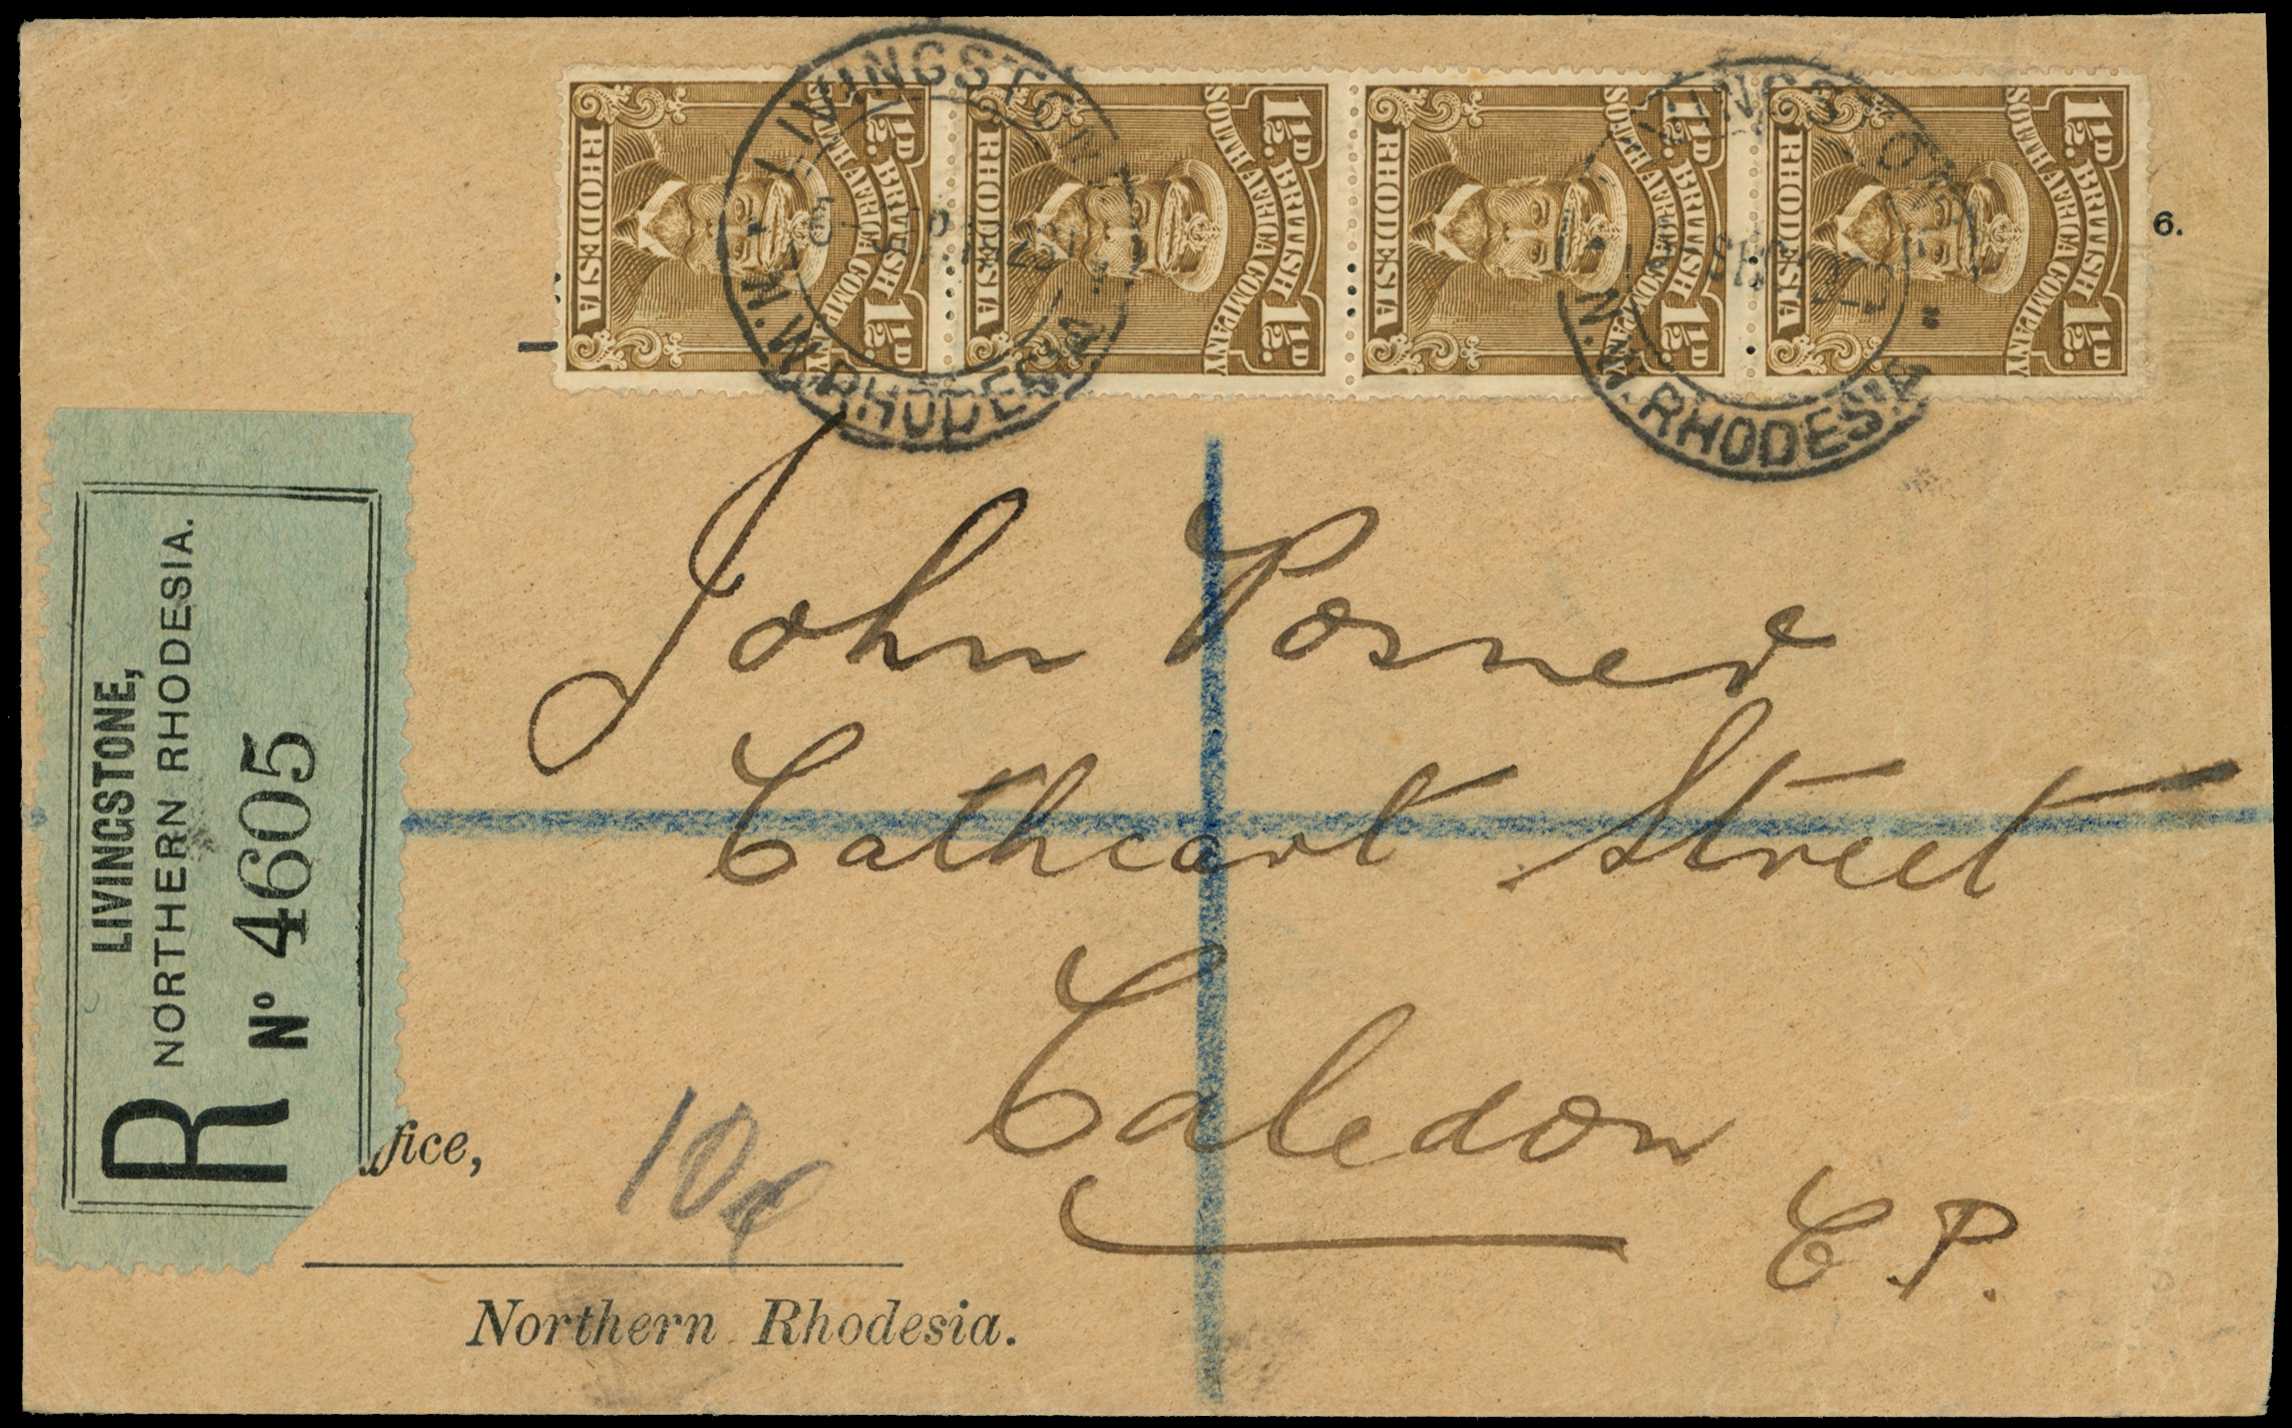 1½D. BRITISH 1½D.
SOUTH AFRICA COMPANY
RHODESIA
1½D. BRITISH 1½D.
SOUTH AFRICA COMPANY
RHODESIA
1½D. BRITISH 1½D.
SOUTH AFRICA COMPANY
RHODESIA
1½D. BRITISH 1½D.
SOUTH AFRICA COMPANY
RHODESIA
LIVINGSTONE
N.W. RHODESIA
LIVINGSTONE
N.W. RHODESIA
6.
R
LIVINGSTONE,
NORTHERN RHODESIA.
Nº 4605
John Posner
Cathcart Street
Caledon
C.P.
fice,
10
Northern Rhodesia.